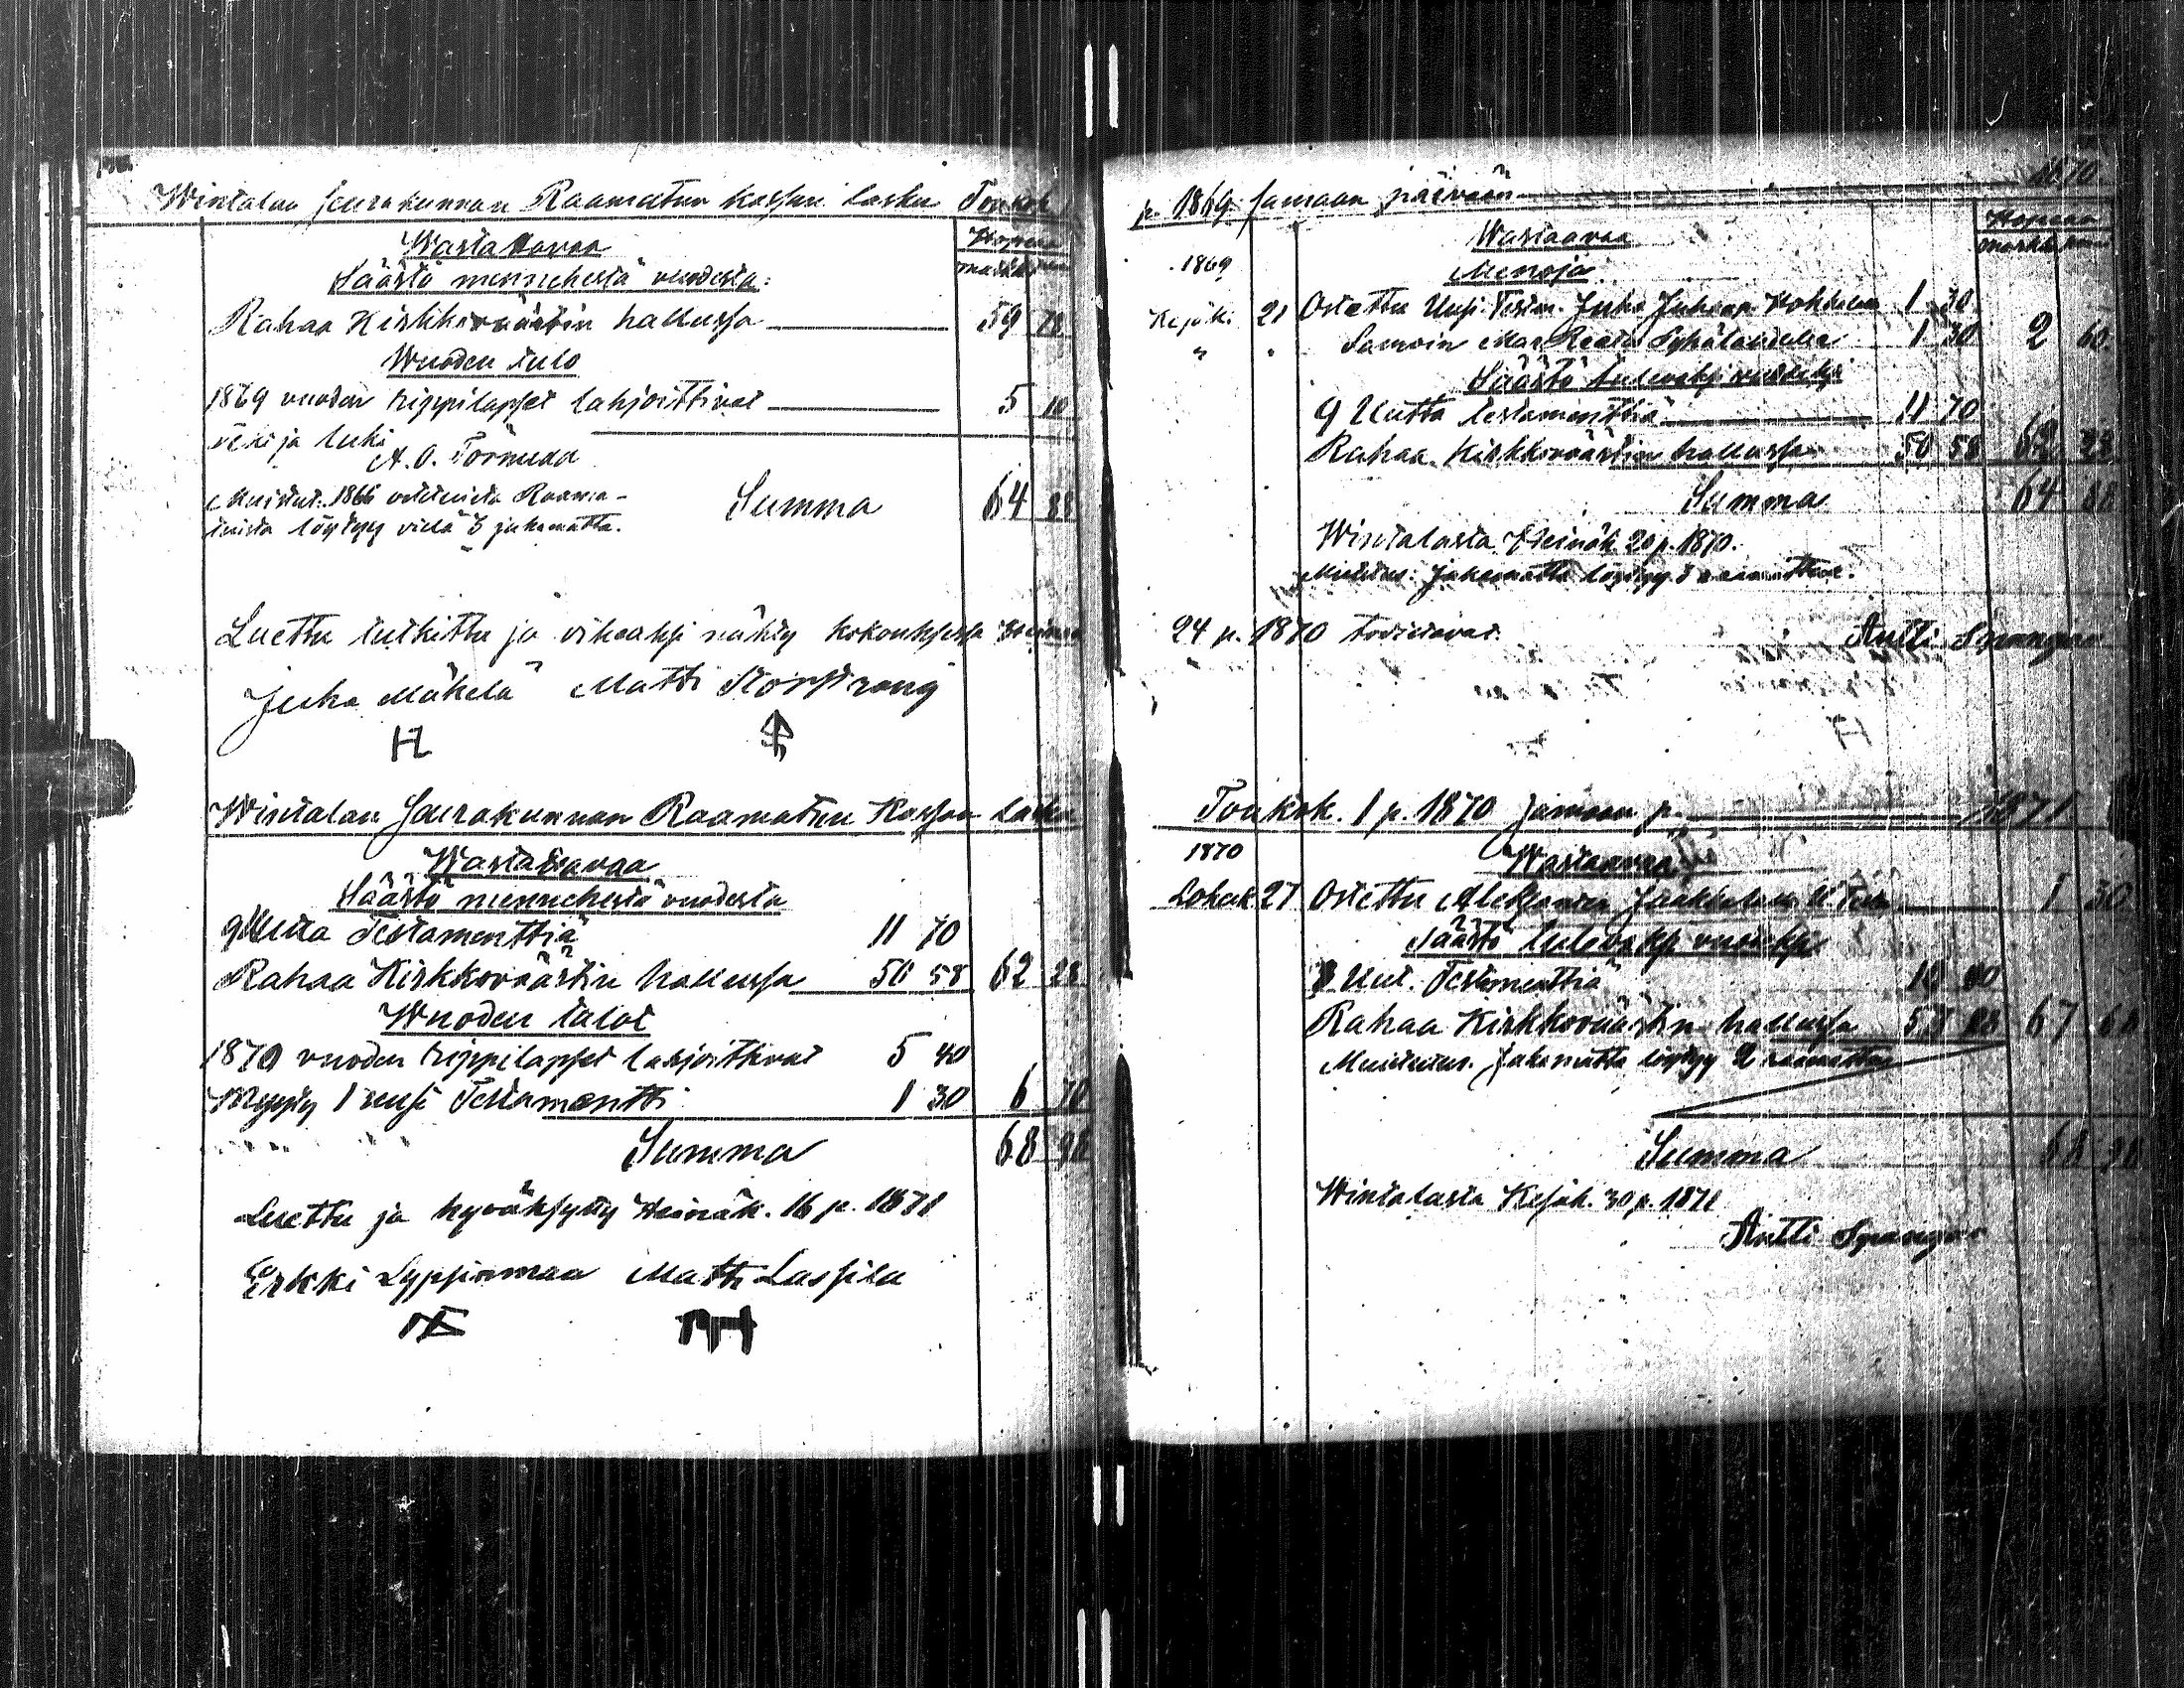 Wintalan seurakunnan Raamatun kassan lasku Toukok. 1
Wastattavaa
Hopeaa
markk.
Säästö mennehestä vuodesta:
Rahaa Kirkkoväärtin hallussa 59 78
Wuoden tulo
1869 vuoden rippilapset lahjoittivat 5 10
veti ja luki
A. O. Törnudd
Muistut. 1866 ostetuista Raama-
tuista löytyy vielä 3 jakamatta.
Summa 64 88
Luettu tutkittu ja oikeaksi nähty kokouksessa Heinäk.
Juho Mäkelä Matti Storstrång
Wintalan Seurakunnan Raamatun Kassan Lasku
Wastattavaa
Säästö mennehestä vuodesta
9 Uutta Testamenttiä 11 70
Rahaa Kirkkoväärtin hallussa 50 58 62 28
Wuoden tulot
1870 vuoden rippilapset lahjoittivat 5 40
Myyty 1 uusi Testamentti 1 30 6 70
Summa 68 98
Luettu ja hyväksytty Heinäk. 16 p. 1871
Erkki Lyppinmaa Matti Lassila
p. 1869 samaan päivään 1870
Wastaavaa
Hopeaa
markk.
1869
Menoja
Kesäk. 21 Ostettu Uusi Testam. Juho Juhonp. 1 30
" " Samoin 1 30 2 60
Säästö tulevaksi vuodeksi
9 Uutta testamenttiä 11 70
Rahaa Kirkkoväärtin hallussa 50 58 62 28
Summa 64 88
Wintalasta Heinäk. 20 p. 1870.
Muistus: Jakamatta löytyy 3 raamattua.
24 p. 1870 todistavat.
Antti Spangar
Toukok. 1 p. 1870 samaan p. 1871
1870
Wastaavaa
Lokak 27 Ostettu 1 30
Säästö tulevaksi vuodeksi
8 Uut. Testamenttiä 10 40
Rahaa Kirkkoväärtin hallussa 57 28 67 68
Muistutus. Jakamatta löytyy 2 raamattua
Summa 68 98
Wintalasta Kesäk. 30 p. 1871
Antti Spangar